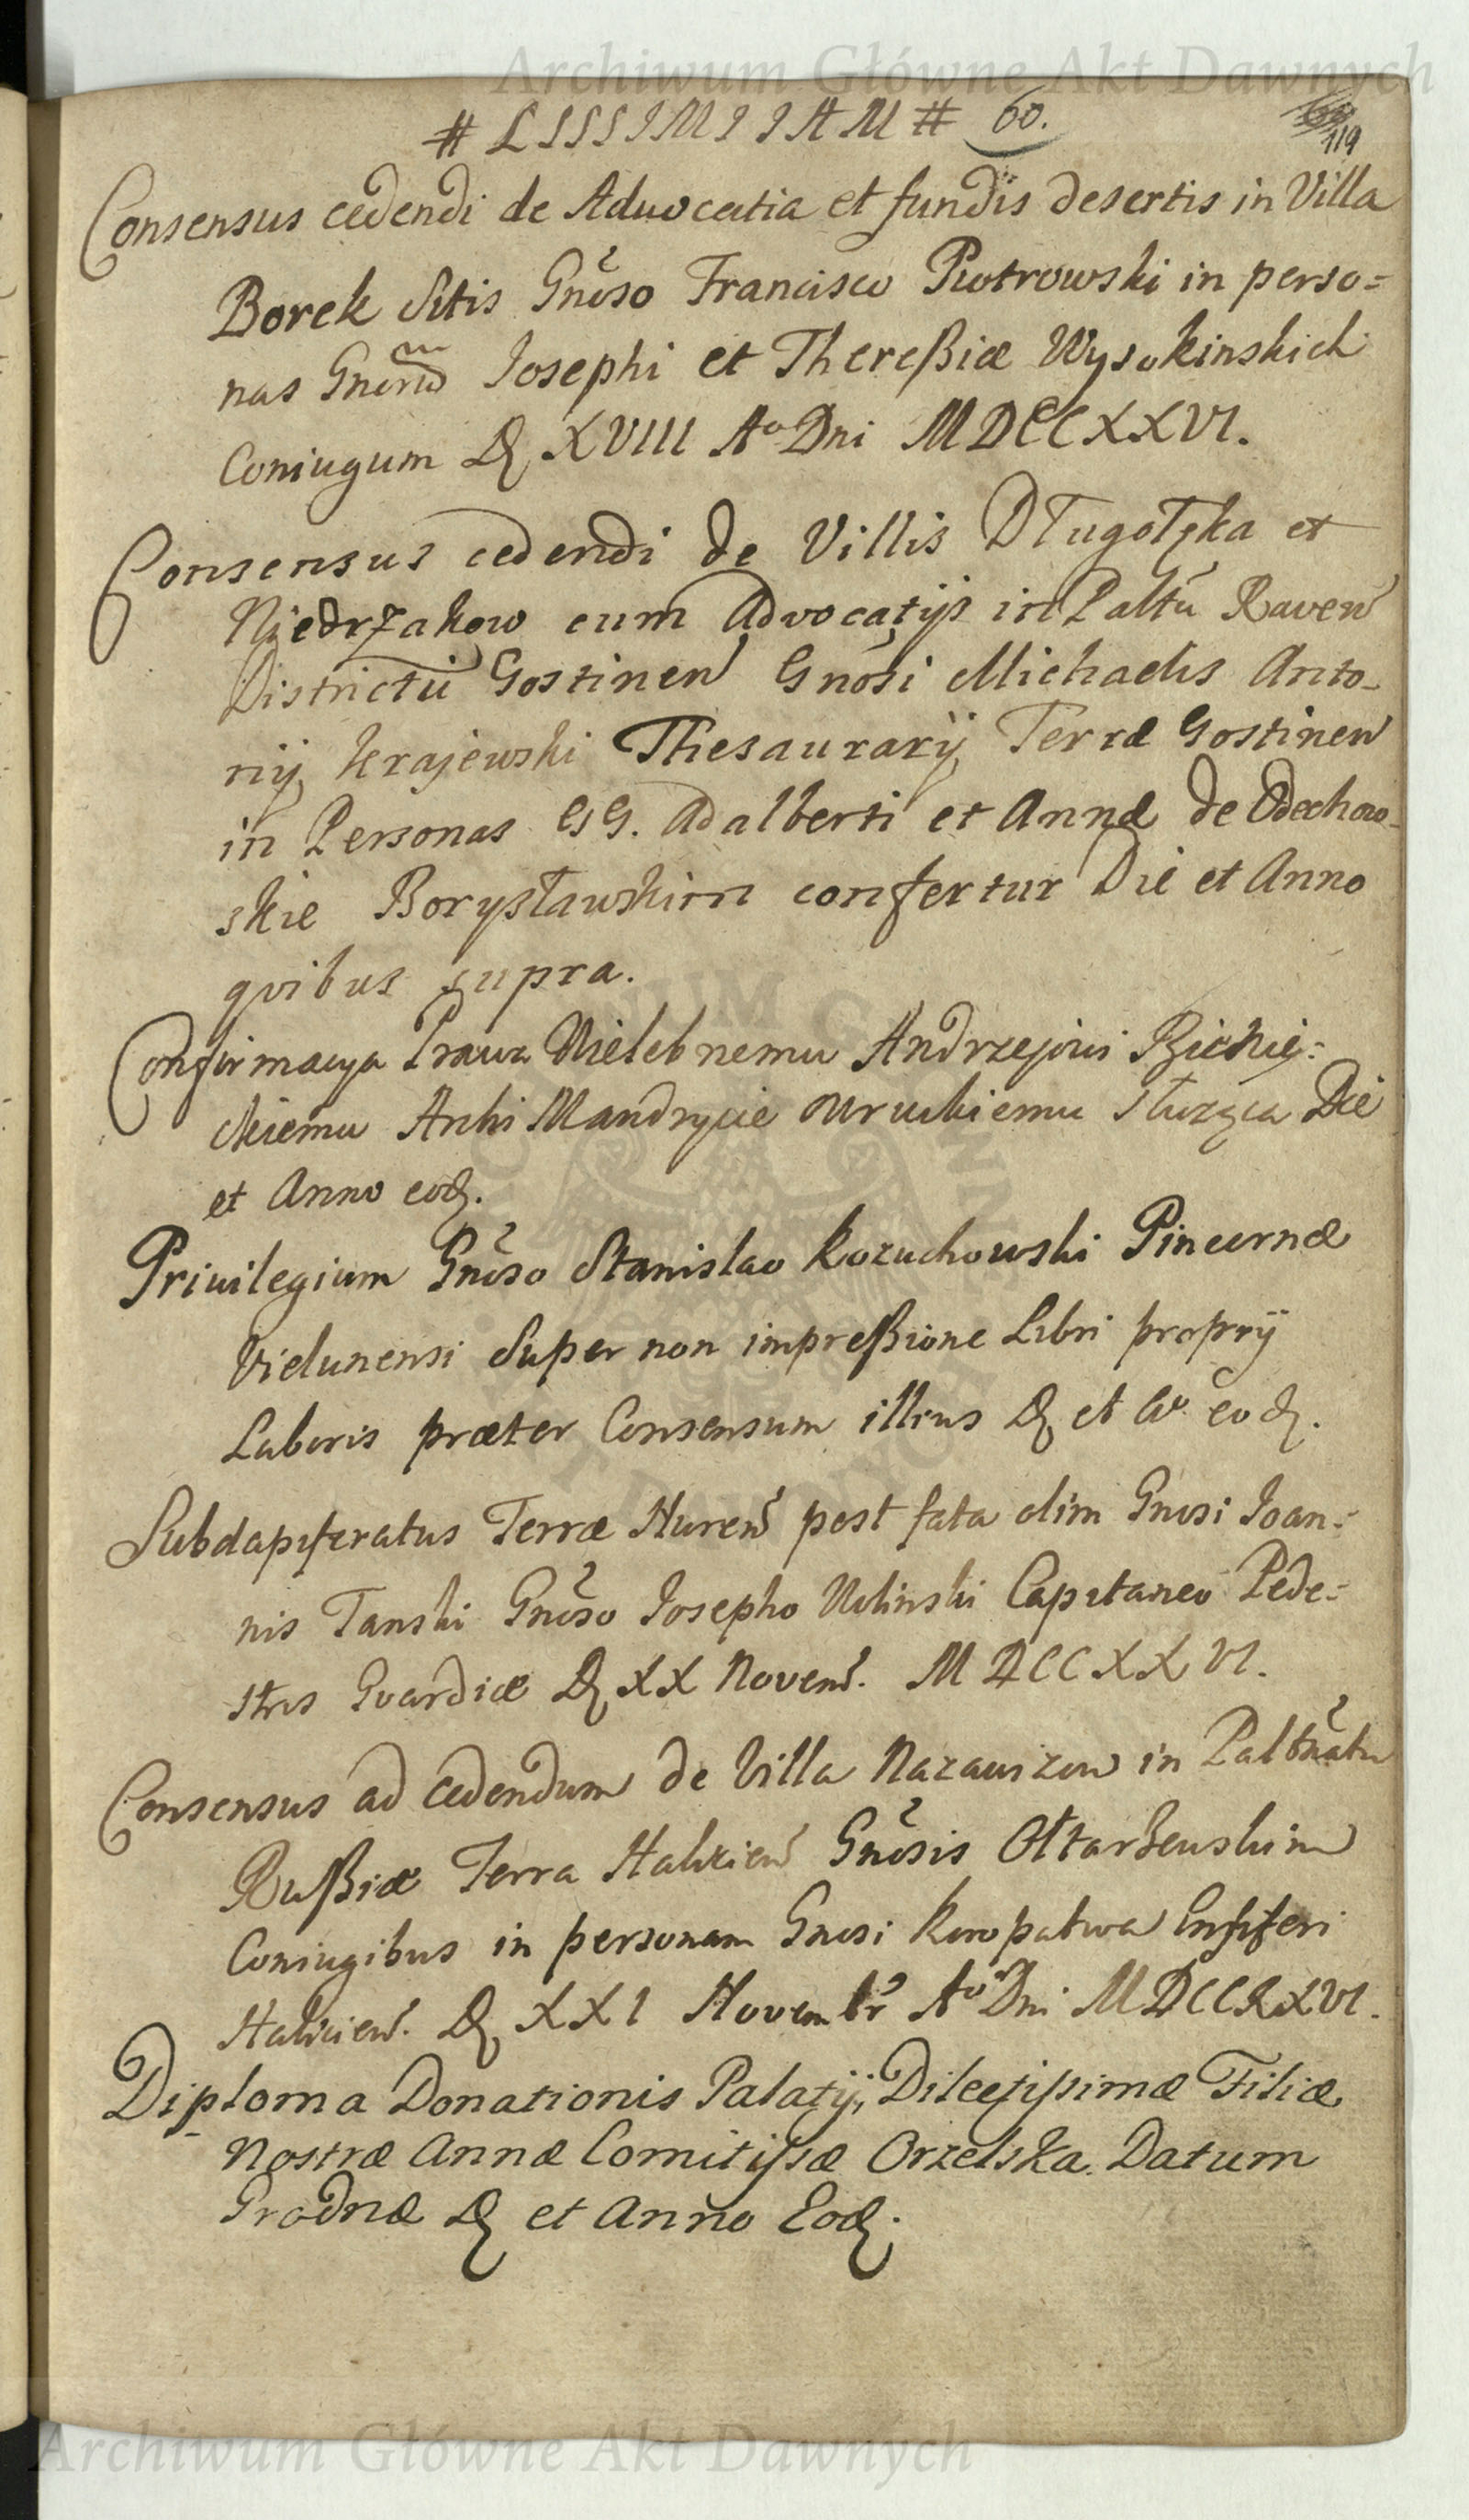 Archiwum Główne Akt Dawnych
# LISSIMIIAM # 60.
119
Consensus cedendi de Aduocatia et fundis desertis in Villa
Borek sitis Gnoso Francisco Piotrowski in perso=
nas Gnorū Josephi et Thereßiæ Wysokinskich
Coniugum D XVIII Aº Dni MDCCXXVI.
Consensus cedendi de Villis Długołęka et
Niedrzakow cum Advocatijs in Paltū Raven
Districtū Gostinen Gnosi Michaelis Anto-
nij Krajewski Thesaurarij Terræ Gostinen
in Personas GG. Adalberti et Annæ de Odechow-
skie Borysławskim confertur Die et Anno
quibus supra.
Confirmacya Prawa Wielebnemu Andrzejowi
Archi Mandrycie Owruckiemu służąca Die
et Anno eod.
Priuilegium Gnoso Stanislao Kozuchowski Pincernæ
Vielunensi Super non impreßione Libri proprij
Laboris præter Consensum illius D et Aº eod.
Subdapiferatus Terræ Nuren post fata olim Gnosi Joan=
nis Tanski Gnoso Josepho Wilinski Capitaneo Pede=
stris Gvardiæ D XX Novem. MDCCXXVI.
Consensus ad cedendum de Villa Nazawizow in Paltnatu
Rußiæ Terra Halicien Gnosis Ottarzewskim
Coniugibus in personam Gnosi Kuropatwa Ensiferi
Halicien. D XXI Novembr Aº Dni MDCCXXVI.
Diploma Donationis Palatij, Dilectissimæ Filiæ
Nostræ Annæ Comitissæ Orzelska. Datum
Grodnæ D et Anno Eod.
Archiwum Główne Akt Dawnych